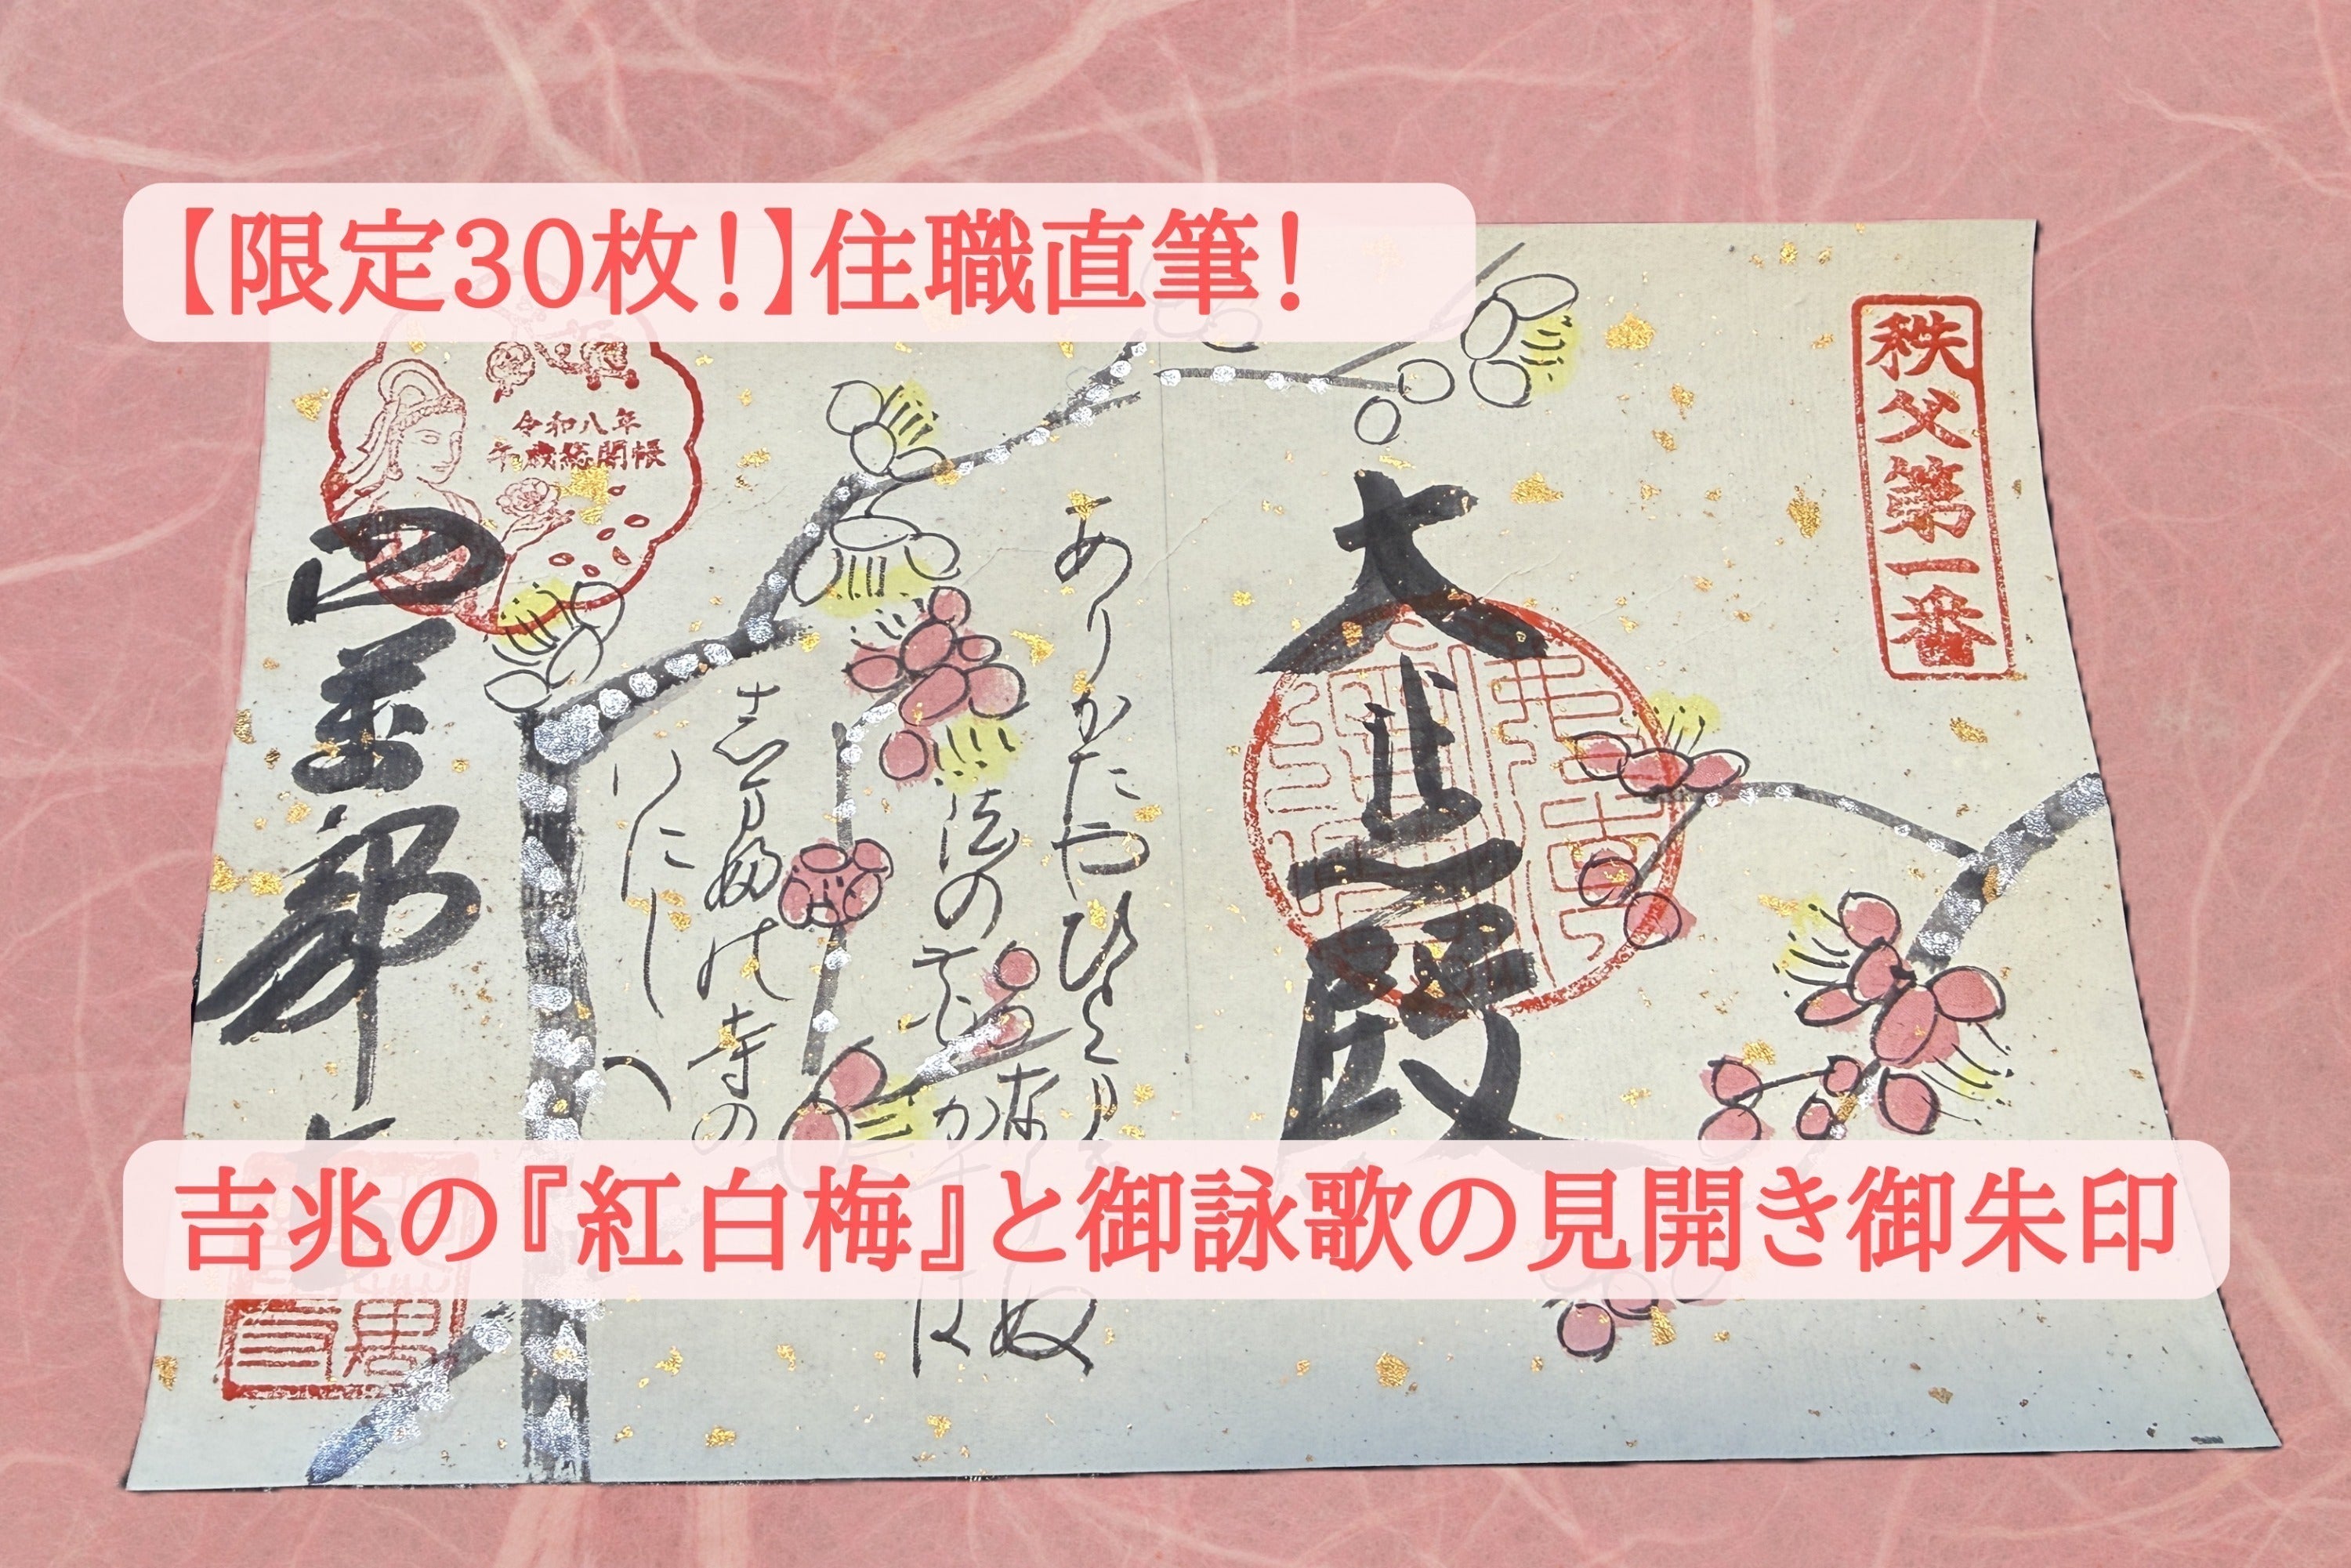 【限定30枚!】住職直筆!
秩父第一番
大悲殿
ありかたやひとま
ならぬ
法の花
かすは
志万婦の寺の
いにしへ
令和八年
午歳総開帳
四萬部寺
吉兆の『紅白梅』と御詠歌の見開き御朱印